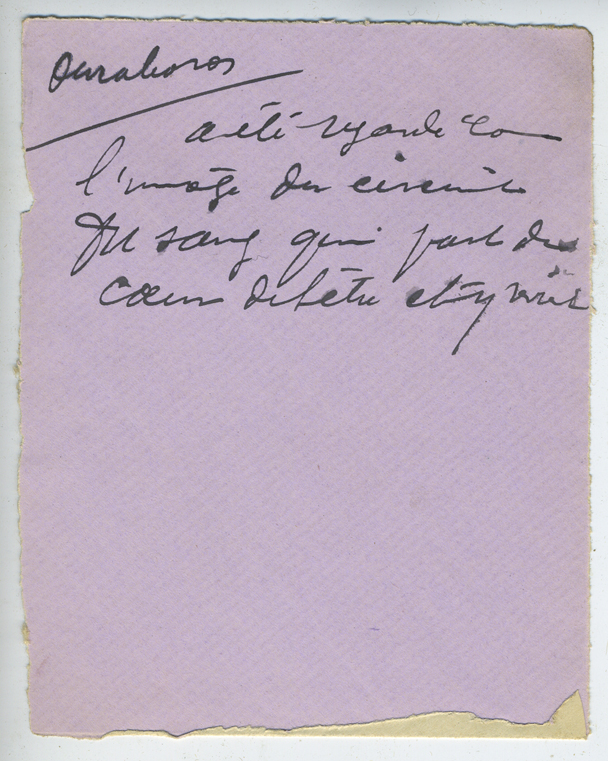 Ouraboros
a été regardé co
l'image du circuit
du sang qui part du
cœur de l'être et y